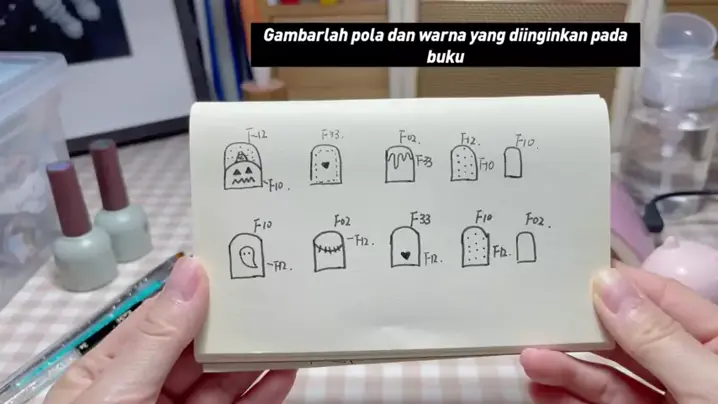 Gambarlah pola dan warna yang diinginkan pada
buku
F-12 F-33. F-02 F-12. F-10.
F-10. F-33 F-10
F-10 F-02 F-33 F-10 F-02.
F-12. F-12. F-12. F-12.